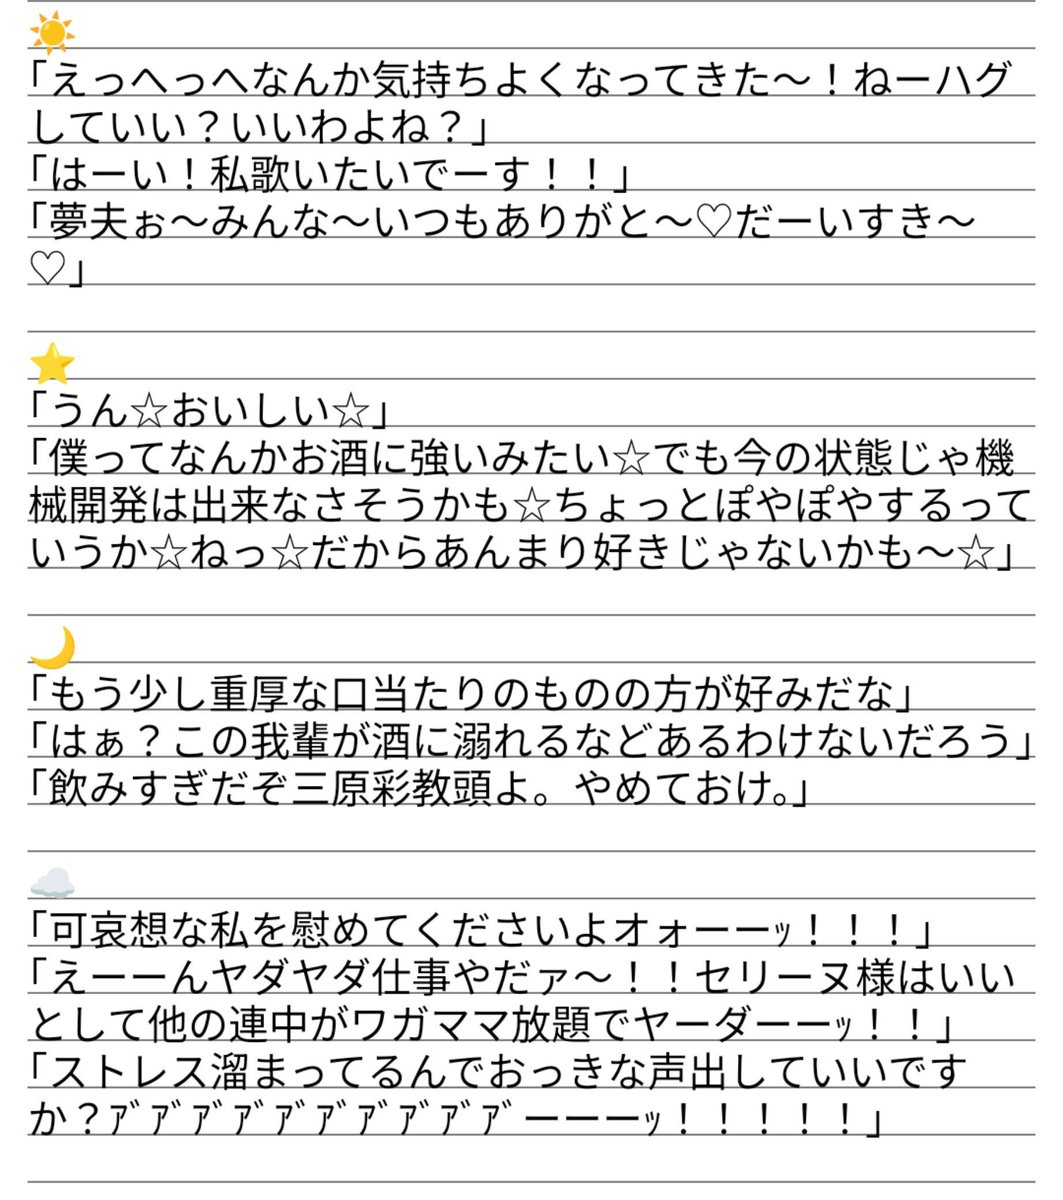 ☀️
「えっへっへなんか気持ちよくなってきた〜！ねーハグ
していい？いいわよね？」
「はーい！私歌いたいでーす！！」
「夢夫ぉ〜みんな〜いつもありがと〜♡だーいすき〜
♡」
⭐
「うん☆おいしい☆」
「僕ってなんかお酒に強いみたい☆でも今の状態じゃ機
械開発は出来なさそうかも☆ちょっとぽやぽやするって
いうか☆ねっ☆だからあんまり好きじゃないかも〜☆」
🌙
「もう少し重厚な口当たりのものの方が好みだな」
「はぁ？この我輩が酒に溺れるなどあるわけないだろう」
「飲みすぎだぞ三原彩教頭よ。やめておけ。」
☁️
「可哀想な私を慰めてくださいよオォーーｯ！！！」
「えーーんヤダヤダ仕事やだァ〜！！セリーヌ様はいい
として他の連中がワガママ放題でヤーダーーｯ！！」
「ストレス溜まってるんでおっきな声出していいです
か？ｱﾞｱﾞｱﾞｱﾞｱﾞｱﾞｱﾞｱﾞｱﾞｱﾞーーーｯ！！！！！」